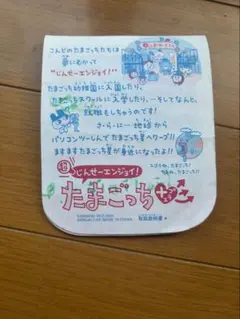 こんどのたまごっちたちは
夢に向かって
"じんせーエンジョイ！"
たまごっち幼稚園に入園したり、
たまごっちスクールに入学したり、…そしてなんと、
就職もしちゃうのです！
さ・ら・に…地球から
パソコンつーしんでたまごっち星へワープ！！
ますますたまごっち星が身近になったよ！！
じんせーエンジョイ！
たまごっち
取扱説明書